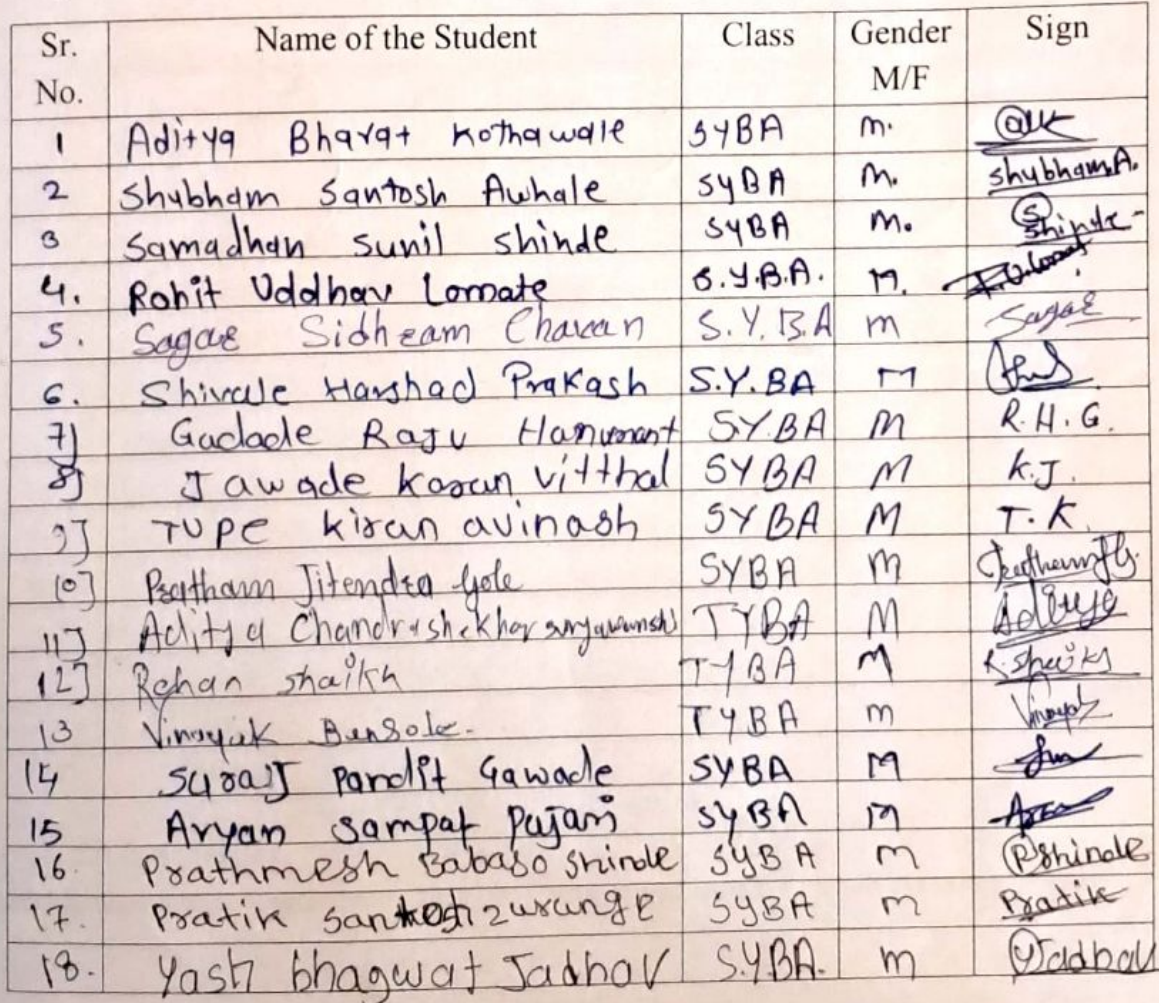 Sr. No. Name of the Student Class Gender M/F Sign
1 Aditya Bharat Kothawale SYBA m.
2 Shubham Santosh Awhale SYBA m. Shubham.A.
3 Samadhan Sunil Shinde SYBA m. S Shinde
4. Rohit Uddhav Lomate S.Y.B.A. M.
5. Sagar Sidhram Chavan S.Y.B.A m Sagar
6. Shivale Harshad Prakash S.Y.BA M
7] Gadade Raju Hanumant S.Y.BA M R.H.G.
8] Jawade Karan Vitthal SYBA M K.J.
9] TUPE kiran avinash SYBA M T.K.
10] Pratham Jitendra Gole SYBA M
11] Aditya Chandrashekhar suryawanshi TYBA M Aditya
12] Rehan shaikh TYBA M R.Shaikh
13 Vinayak Bansole. TYBA m Vinayak
14 Suraj Pandit Gawade SYBA M
15 Aryan Sampat Pujari SYBA M
16. Prathmesh Babaso Shinde SYBA m PShinde
17. Pratik Santosh zurunge SYBA m Pratik
18. Yash bhagwat Jadhav S.Y.BA. m YJadhav